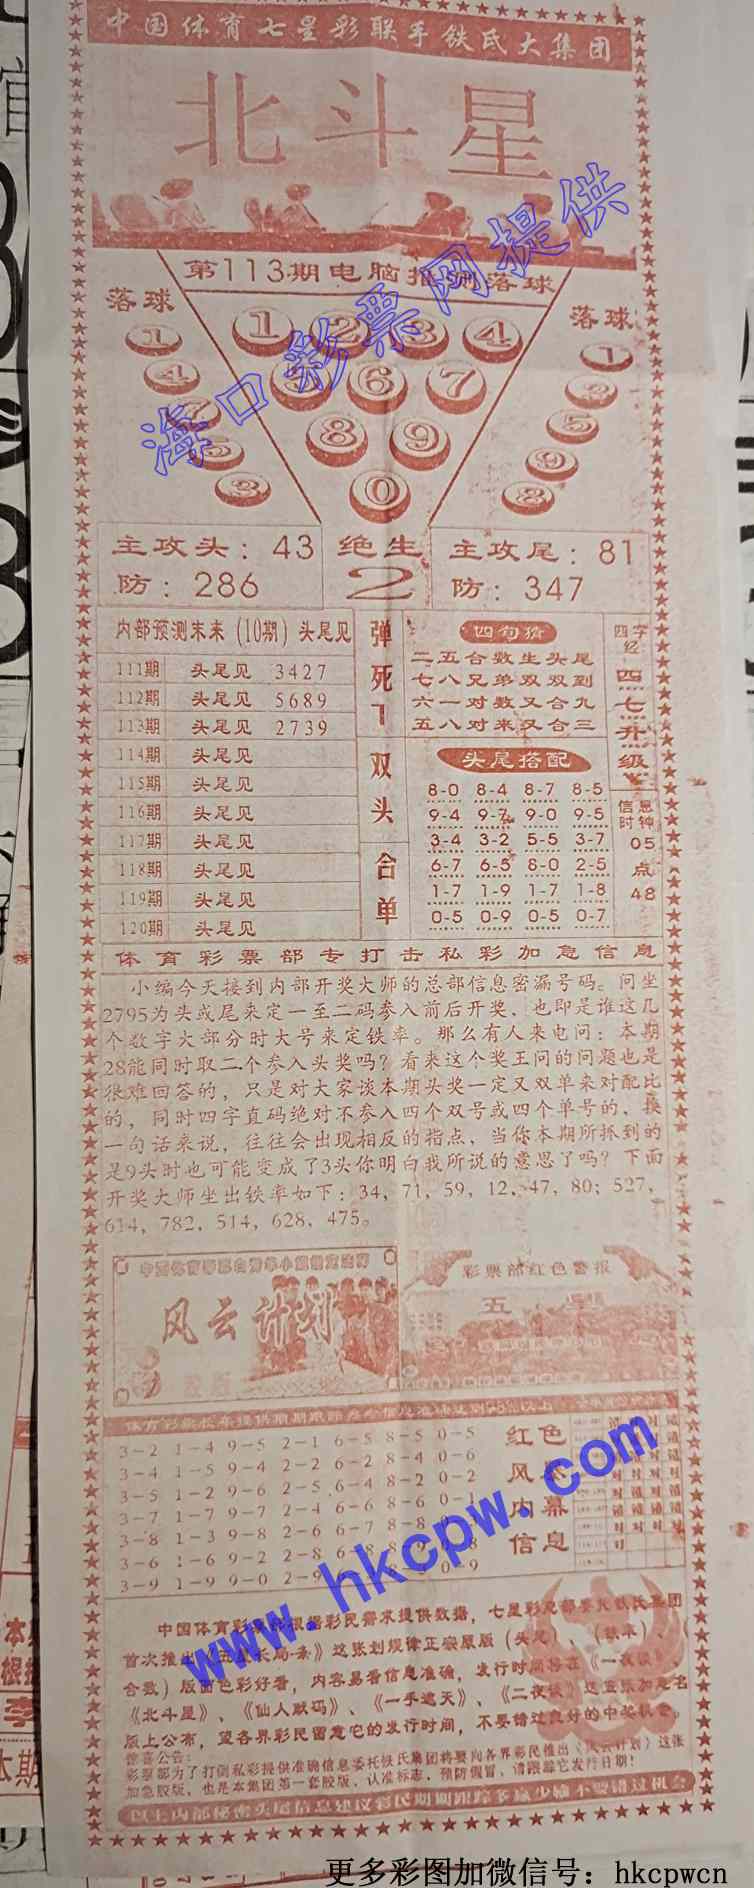 中国体育七星彩联手铁氏大集团
北斗星
第113期电脑推测落球
落球
1
4
7
5
3
1 2 3 4
5 6 7
8 9
0
落球
1
2
5
9
8
主攻头：43
防：286
绝生
2
主攻尾：81
防：347
内部预测未来（10期）头尾见
111期 头尾见 3427
112期 头尾见 5689
113期 头尾见 2739
114期 头尾见
115期 头尾见
116期 头尾见
117期 头尾见
118期 头尾见
119期 头尾见
120期 头尾见
弹死
双头
合单
四句猜
二五合数生头尾
七八兄弟双双到
六一对数又合九
五八对来又合三
四字经：
四七升级
头尾搭配
8-0 8-4 8-7 8-5
9-4 9-7 9-0 9-5
3-4 3-2 5-5 3-7
6-7 6-5 8-0 2-5
1-7 1-9 1-7 1-8
0-5 0-9 0-5 0-7
信息时钟
05
点
48
体育彩票部专打击私彩加急信息
小编今天接到内部开奖大师的总部信息密漏号码。问坐
2795为头或尾来定一至二码参入前后开奖，也即是谁这几
个数字大部分时大号来定铁率。那么有人来电问：本期
28能同时取二个参入头奖吗？看来这个奖王问的问题也是
很难回答的，只是对大家谈本期头奖一定又双单来对配比
的，同时四字直码绝对不参入四个双号或四个单号的，换
一句话来说，往往会出现相反的指点，当你本期所抓到的
是9头时也可能变成了3头你明白我所说的意思了吗？下面
开奖大师坐出铁率如下：34，71，59，12，47，80；527，
614，782，514，628，475。
风云计划
彩票部红色警报
3-2 1-4 9-5 2-1 6-5 8-5 0-5
3-4 1-5 9-4 2-2 6-2 8-4 0-6
3-5 1-2 9-6 2-5 6-4 8-2 0-2
3-7 1-7 9-7 2-4 6-6 8-6 0-1
3-8 1-3 9-8 2-6 6-7 8-8
3-6 1-6 9-2 2-8 6-8
3-9 1-9 9-0 2-9 0-9
红色
风
内幕
信息
中国体育彩票部根据彩民需求提供数据，七星彩
首次推出《五星长局条》这张划规律正宗原版（头尾）、
合数）版面色彩好看，内容易看信息准确，发行时间将在《一夜谈》、
《北斗星》、《仙人献码》、《一手遮天》、《二夜谈》这
版上公布，望各界彩民留意它的发行时间，不要错过良好的中奖机会。
惊喜公告：
彩票部为了打倒私彩提供准确信息委托铁氏集团将要向各界彩民推出《风云计划》这张
加急胶版，也是本集团第一套胶版，认准标志，预防假冒，请跟踪它发行日期！
以上内部秘密头尾信息建议彩民期期跟踪多赢少输不要错过机会
海口彩票网提供
www.hkcpw.com
更多彩图加微信号：hkcpwcn